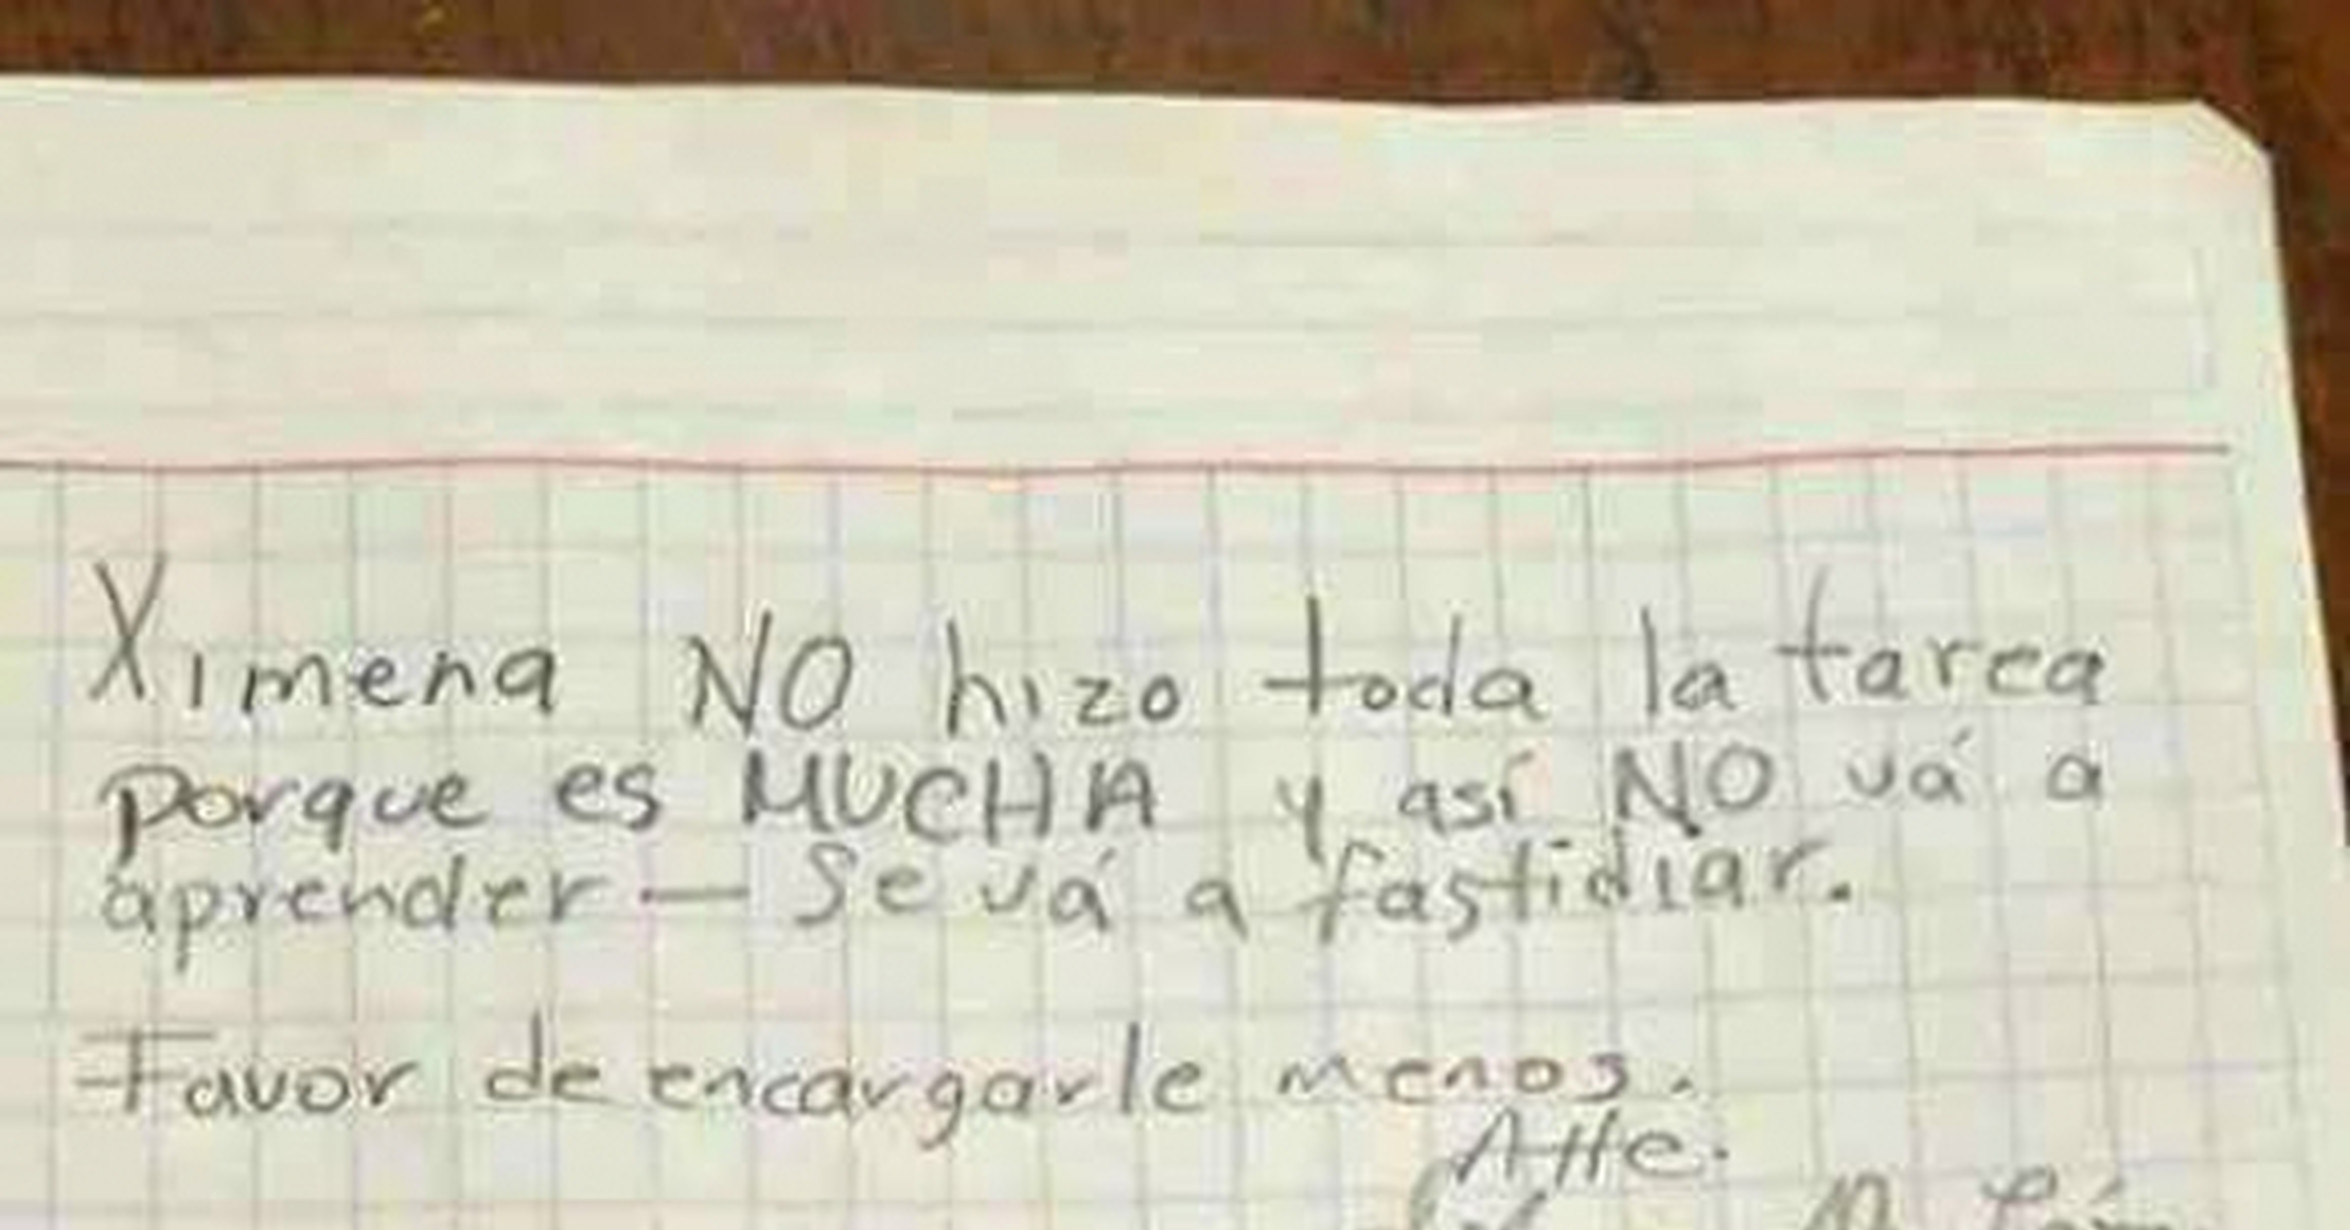 Ximena NO hizo toda la tarea
porque es MUCHA y así NO vá a
aprender — Se vá a fastidiar.
Favor de encargarle menos.
Atte.